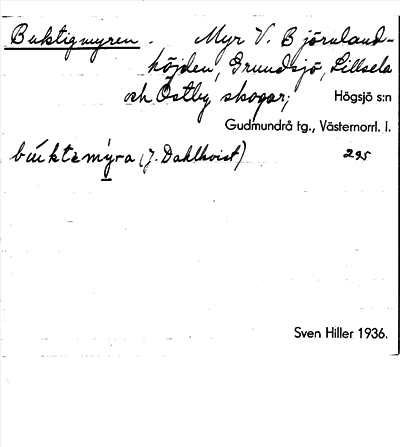 Buktigmyren. Myr V. Björnland-
höjden, Grundsjö, Lillsela
och Östby skogar; Högsjö s:n
Gudmundrå tg., Västernorrl. l.
búktemýra (J. Dahlkvist) 295
Sven Hiller 1936.